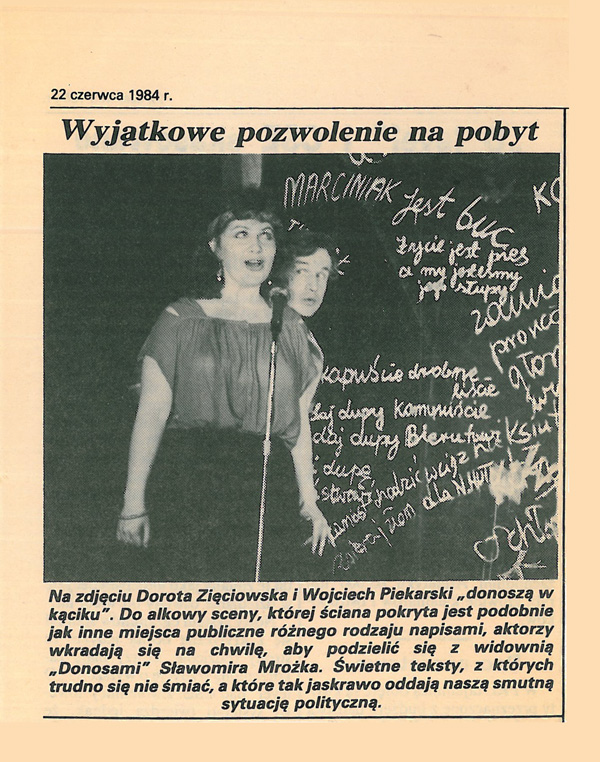 22 czerwca 1984 r.
Wyjątkowe pozwolenie na pobyt
MARCINIAK jest buc
życie jest pies
a my jesteśmy
jego
kapuście drobne
liście
daj dupy komuniście
daj dupy Bierutowi
i dupę
dla NHT
Na zdjęciu Dorota Zięciowska i Wojciech Piekarski „donoszą w
kąciku”. Do alkowy sceny, której ściana pokryta jest podobnie
jak inne miejsca publiczne różnego rodzaju napisami, aktorzy
wkradają się na chwilę, aby podzielić się z widownią
„Donosami” Sławomira Mrożka. Świetne teksty, z których
trudno się nie śmiać, a które tak jaskrawo oddają naszą smutną
sytuację polityczną.